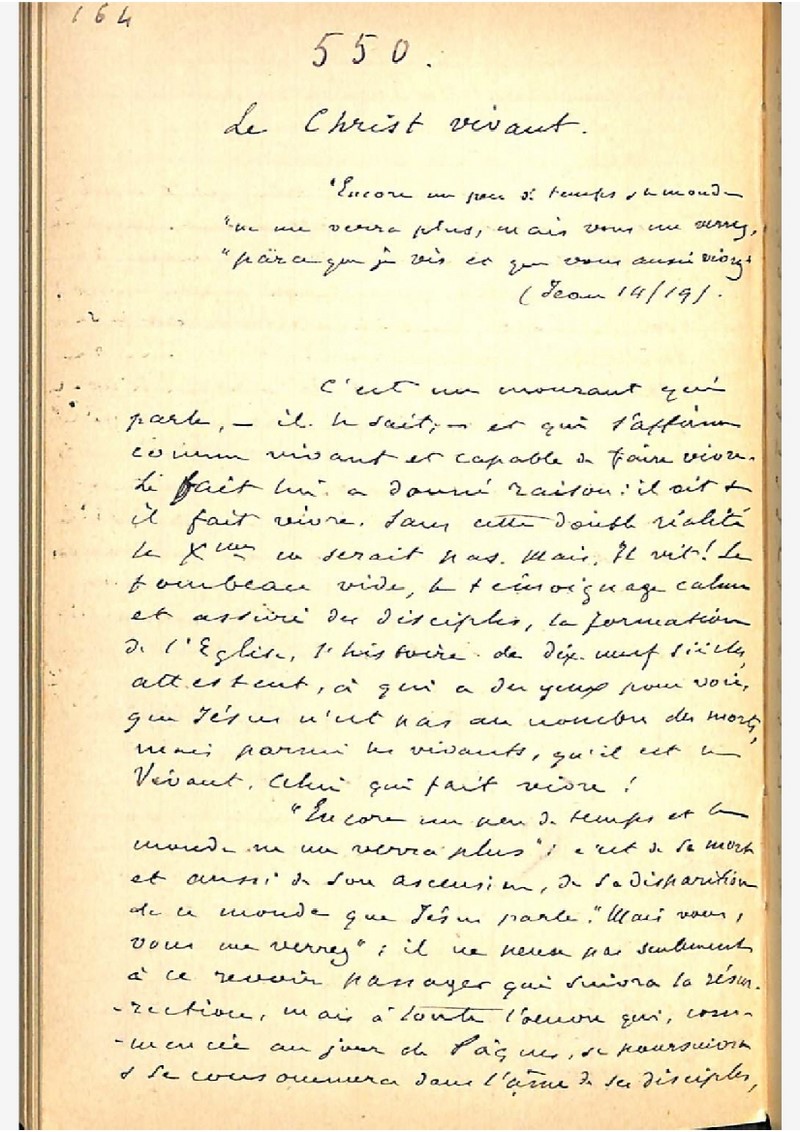 164
550.
Le Christ vivant.
"Encore un peu de temps & le monde
"ne me verra plus, mais vous me verrez,
"parce que je vis et que vous aussi vivrez"
(Jean 14/19).
C'est un mourant qui
parle, – il le sait, – et qui s'affirme
comme vivant et capable de faire vivre.
Le fait lui a donné raison: il vit &
il fait vivre. Sans cette double réalité
le Xme ne serait pas. Mais, Il vit! Le
tombeau vide, le témoignage calme
et assuré des disciples, la formation
de l'Eglise, l'histoire de dix-neuf siècles,
attestent, à qui a des yeux pour voir,
que Jésus n'est pas au nombre des morts,
mais parmi les vivants, qu'il est un
Vivant, Celui qui fait vivre!
"Encore un peu de temps et le
monde ne me verra plus"; c'est de sa mort
et aussi de son ascension, de sa disparition
de ce monde que Jésus parle. "Mais vous,
vous me verrez"; il ne pense pas seulement
à ce revoir passager qui suivra la résur-
-rection, mais à toute l'oeuvre qui, com-
-mencée au jour de Pâques, se poursuivra
& se consommera dans l'âme de ses disciples,